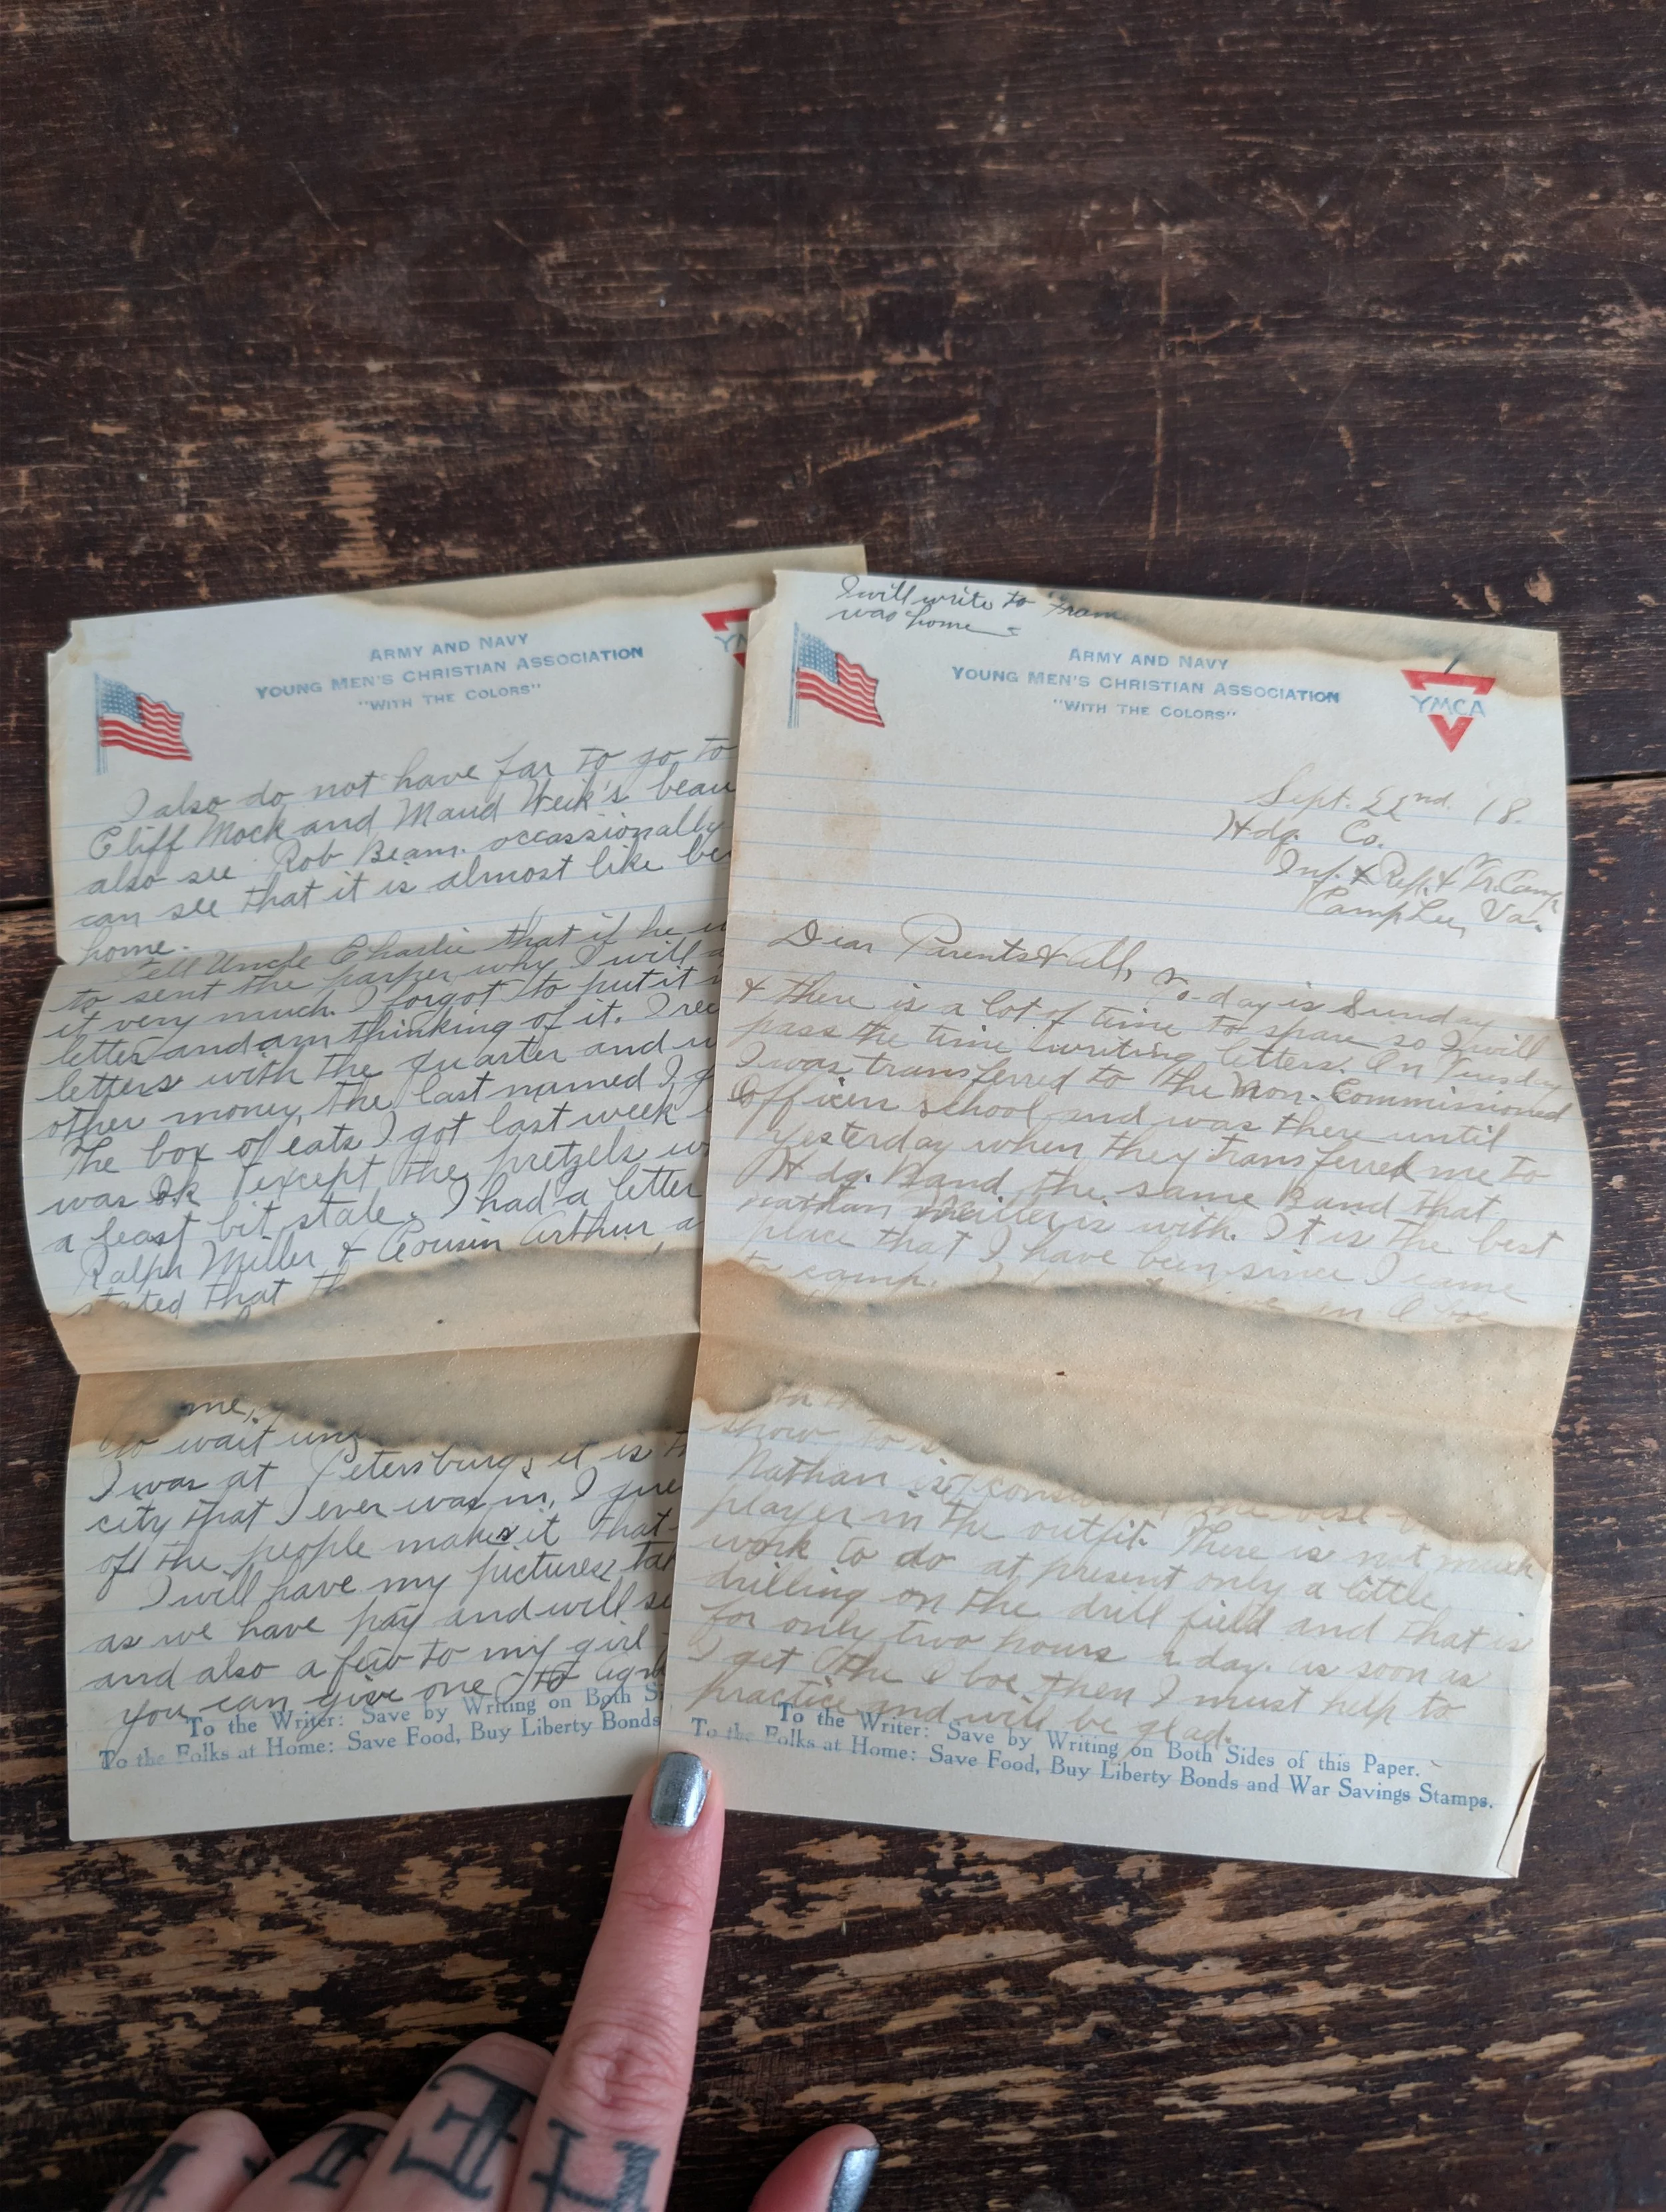 ARMY AND NAVY
YOUNG MEN'S CHRISTIAN ASSOCIATION
"WITH THE COLORS"
I also do not have far to go to
Cliff Mock and Maud Weik's beau
also see Rob Beam occassionally
can see that it is almost like be
home.
Tell Uncle Charlie that if he
to sent the parper why I will
it very much. I forgot to put it
letter and am thinking of it. I rec
letters with the quarter and
other money, the last named I
The box of eats I got last week
was ok except the pretzels
a least bit stale. I had a letter
Ralph Miller & Cousin Arthur, a
stated that
me,
to wait
I was at Petersburg, it is
city that I ever was in, I gue
of the people makes it that
I will have my pictures ta
as we have pay and will se
and also a few to my girl
you can give one to
To the Writer: Save by Writing on Both S
To the Folks at Home: Save Food, Buy Liberty Bonds
I will write to
was home
ARMY AND NAVY
YOUNG MEN'S CHRISTIAN ASSOCIATION
"WITH THE COLORS"
YMCA
Sept. 22nd. 18.
Hdq. Co.
Inf. & Repl. & Tr. Camp
Camp Lee, Va.
Dear Parents & all,
To-day is Sunday
& there is a lot of time to spare so I will
pass the time writing letters. On Tuesday
I was transferred to the Non-Commissioned
Officers school and was there until
yesterday when they transferred me to
Hdq. Band, the same Band that
nathan is with. It is the best
place that I have been since I came
to camp. in Oboe
show to
Nathan is the best
player in the outfit. There is not much
work to do at present only a little
drilling on the drill field and that is
for only two hours a day. as soon as
I get the Oboe then I must help to
practice and will be glad.
To the Writer: Save by Writing on Both Sides of this Paper.
To the Folks at Home: Save Food, Buy Liberty Bonds and War Savings Stamps.